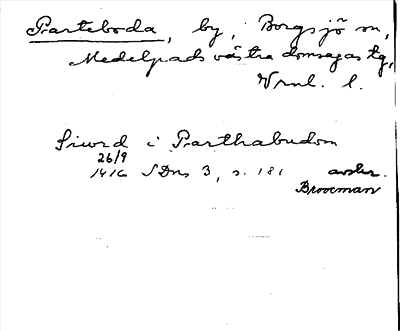 Parteboda, by, Borgsjö sn,
Medelpads västra domsagas tg,
Vrnl. l.
Siword i Parthabudom
26/9
1416 SDns 3, s. 181 avskr.
Brocman